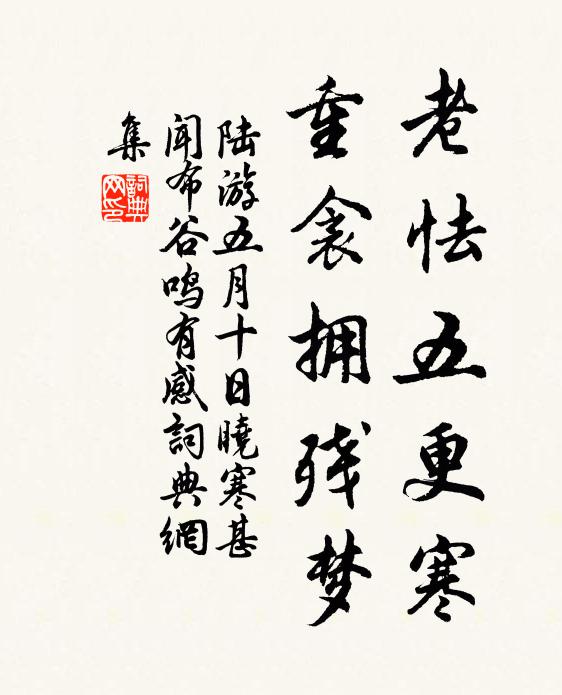 老怯五更寒
重衾拥残梦
陆游五月十日曉寒甚
闻布谷鸣有感詞典網
集
詞典網印